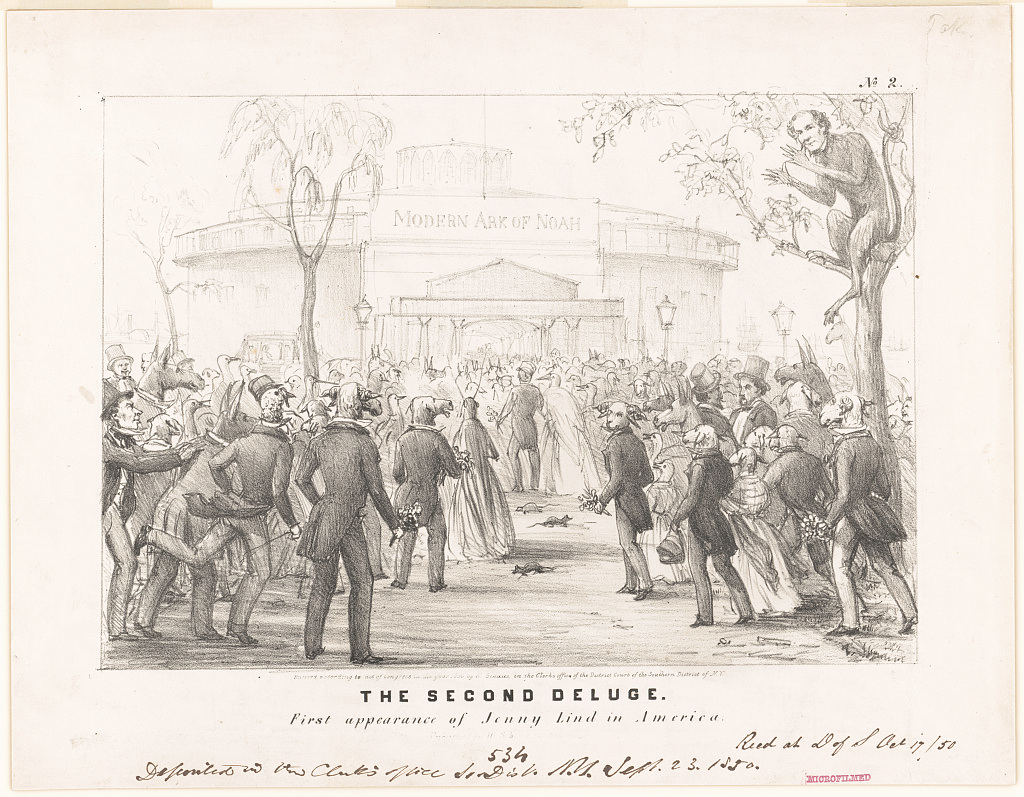 Tak.
No 2.
MODERN ARK OF NOAH
Entered according to act of Congress in the year 1850 by in the Clerks office of the District Court of the Southern District of N.Y.
THE SECOND DELUGE.
First appearance of Jenny Lind in America.
534
Recd at D of S Oct 17/50
Deposited in the Clerk's office So. Dist. N.Y. Sept. 23. 1850.
MICROFILMED